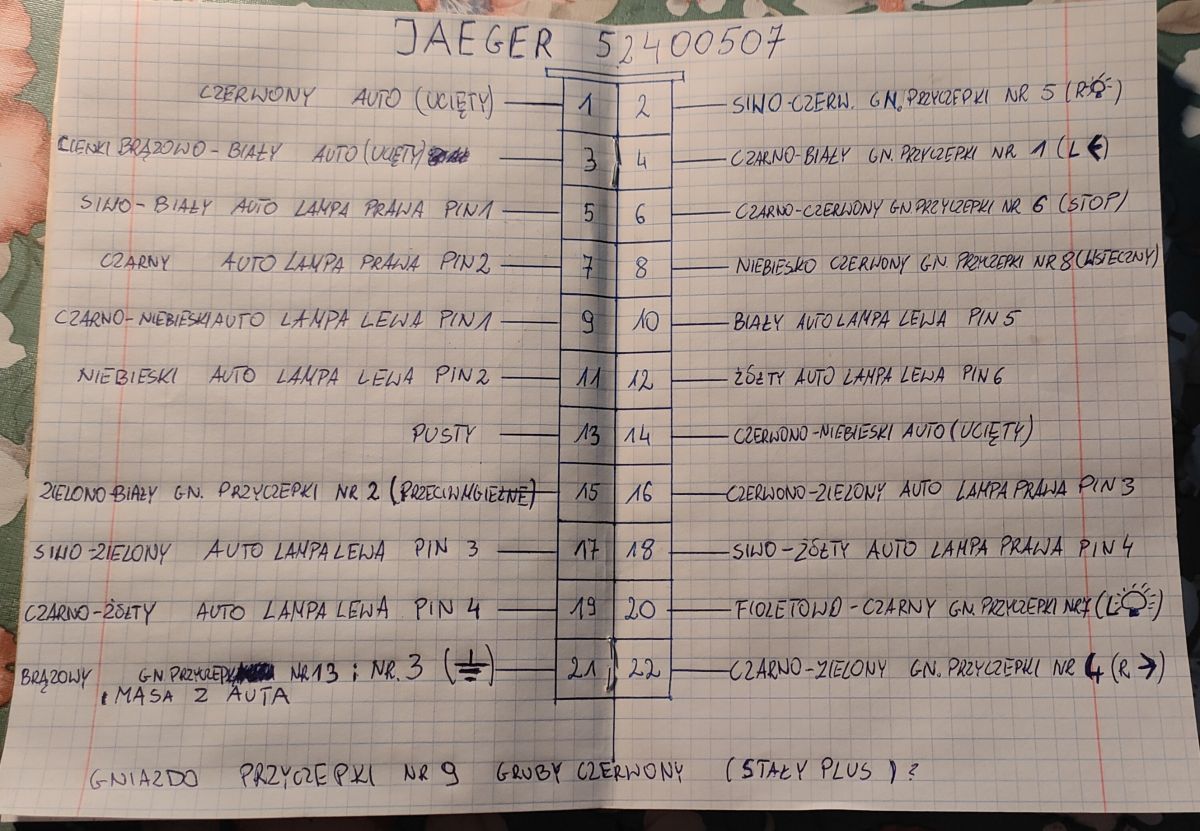 JAEGER 52400507
CZERWONY AUTO (UCIĘTY) 1 2 SIWO-CZERW. GN. PRZYCZEPKI NR 5 (R)
CIENKI BRĄZOWO-BIAŁY AUTO (UCIĘTY) 3 4 CZARNO-BIAŁY GN. PRZYCZEPKI NR 1 (L ←)
SIWO-BIAŁY AUTO LAMPA PRAWA PIN1 5 6 CZARNO-CZERWONY GN. PRZYCZEPKI NR 6 (STOP)
CZARNY AUTO LAMPA PRAWA PIN2 7 8 NIEBIESKO CZERWONY GN. PRZYCZEPKI NR 8 (WSTECZNY)
CZARNO-NIEBIESKI AUTO LAMPA LEWA PIN1 9 10 BIAŁY AUTO LAMPA LEWA PIN 5
NIEBIESKI AUTO LAMPA LEWA PIN2 11 12 ŻÓŁTY AUTO LAMPA LEWA PIN 6
PUSTY 13 14 CZERWONO-NIEBIESKI AUTO (UCIĘTY)
ZIELONO-BIAŁY GN. PRZYCZEPKI NR 2 (PRZECIWMGIELNE) 15 16 CZERWONO-ZIELONY AUTO LAMPA PRAWA PIN 3
SIWO-ZIELONY AUTO LAMPA LEWA PIN 3 17 18 SIWO-ŻÓŁTY AUTO LAMPA PRAWA PIN 4
CZARNO-ŻÓŁTY AUTO LAMPA LEWA PIN 4 19 20 FIOLETOWO-CZARNY GN. PRZYCZEPKI NR7 (L)
BRĄZOWY GN PRZYCZEPKI NR 13 i NR. 3 21 22 CZARNO-ZIELONY GN. PRZYCZEPKI NR 4 (R →)
i MASA Z AUTA
GNIAZDO PRZYCZEPKI NR 9 GRUBY CZERWONY (STAŁY PLUS) ?